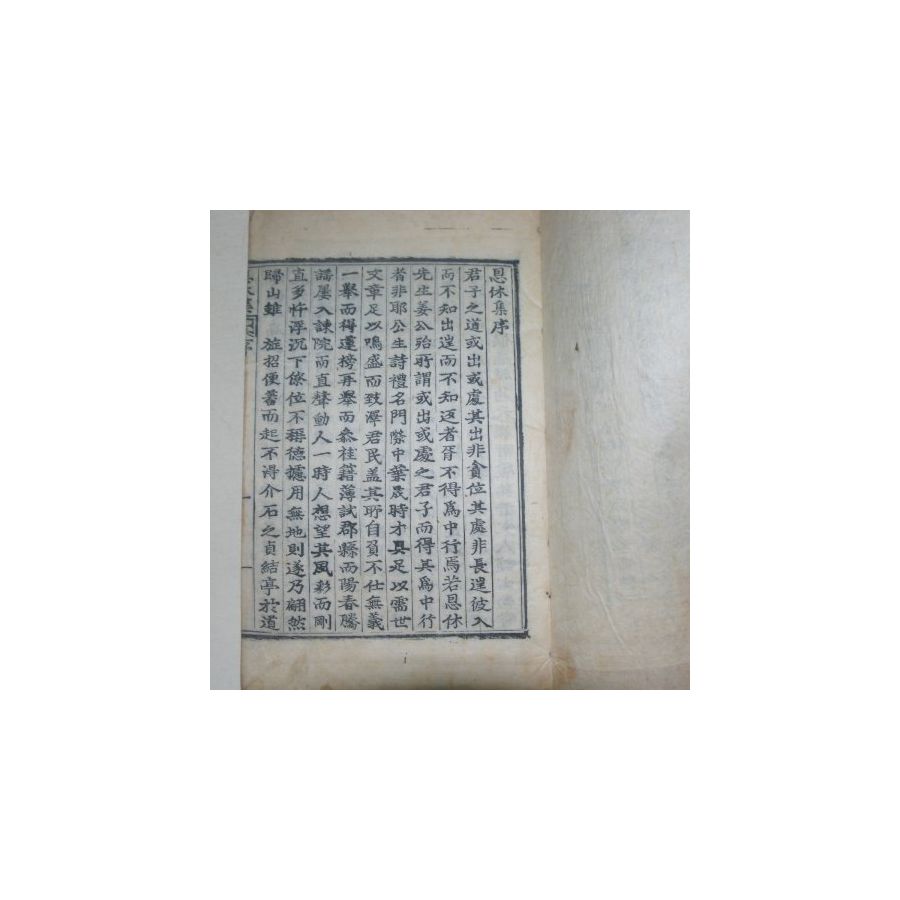 恩休集序
君子之道或出或處其出非貪位其處非長徃彼入
而不知出徃而不知返者胥不得爲中行焉若恩休
先生姜公殆所謂或出或處之君子而得其爲中行
者非耶公生詩禮名門際中葉晟時才具足以需世
文章足以鳴盛而致澤君民盖其所自負不仕無義
一擧而得蓮榜再擧而叅桂籍薄試郡縣而陽春騰
謠屢入諫院而直聲動人一時人想望其風彩而剛
直多忤浮沉下僚位不稱德攄用無地則遂乃翩然
歸山雖 旌招便蕃而起不淂介石之貞結亭於道